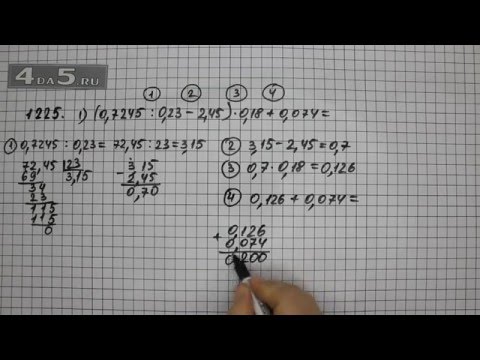 4DA5.RU
① ② ③ ④
1225. 1) (0,7245 : 0,23 - 2,45) · 0,18 + 0,074 =
① 0,7245 : 0,23 = 72,45 : 23 = 3,15
72,45 23
69 3,15
34
23
115
115
0
3,15
- 2,45
0,70
② 3,15 - 2,45 = 0,7
③ 0,7 · 0,18 = 0,126
④ 0,126 + 0,074 =
0,126
+ 0,074
0,200